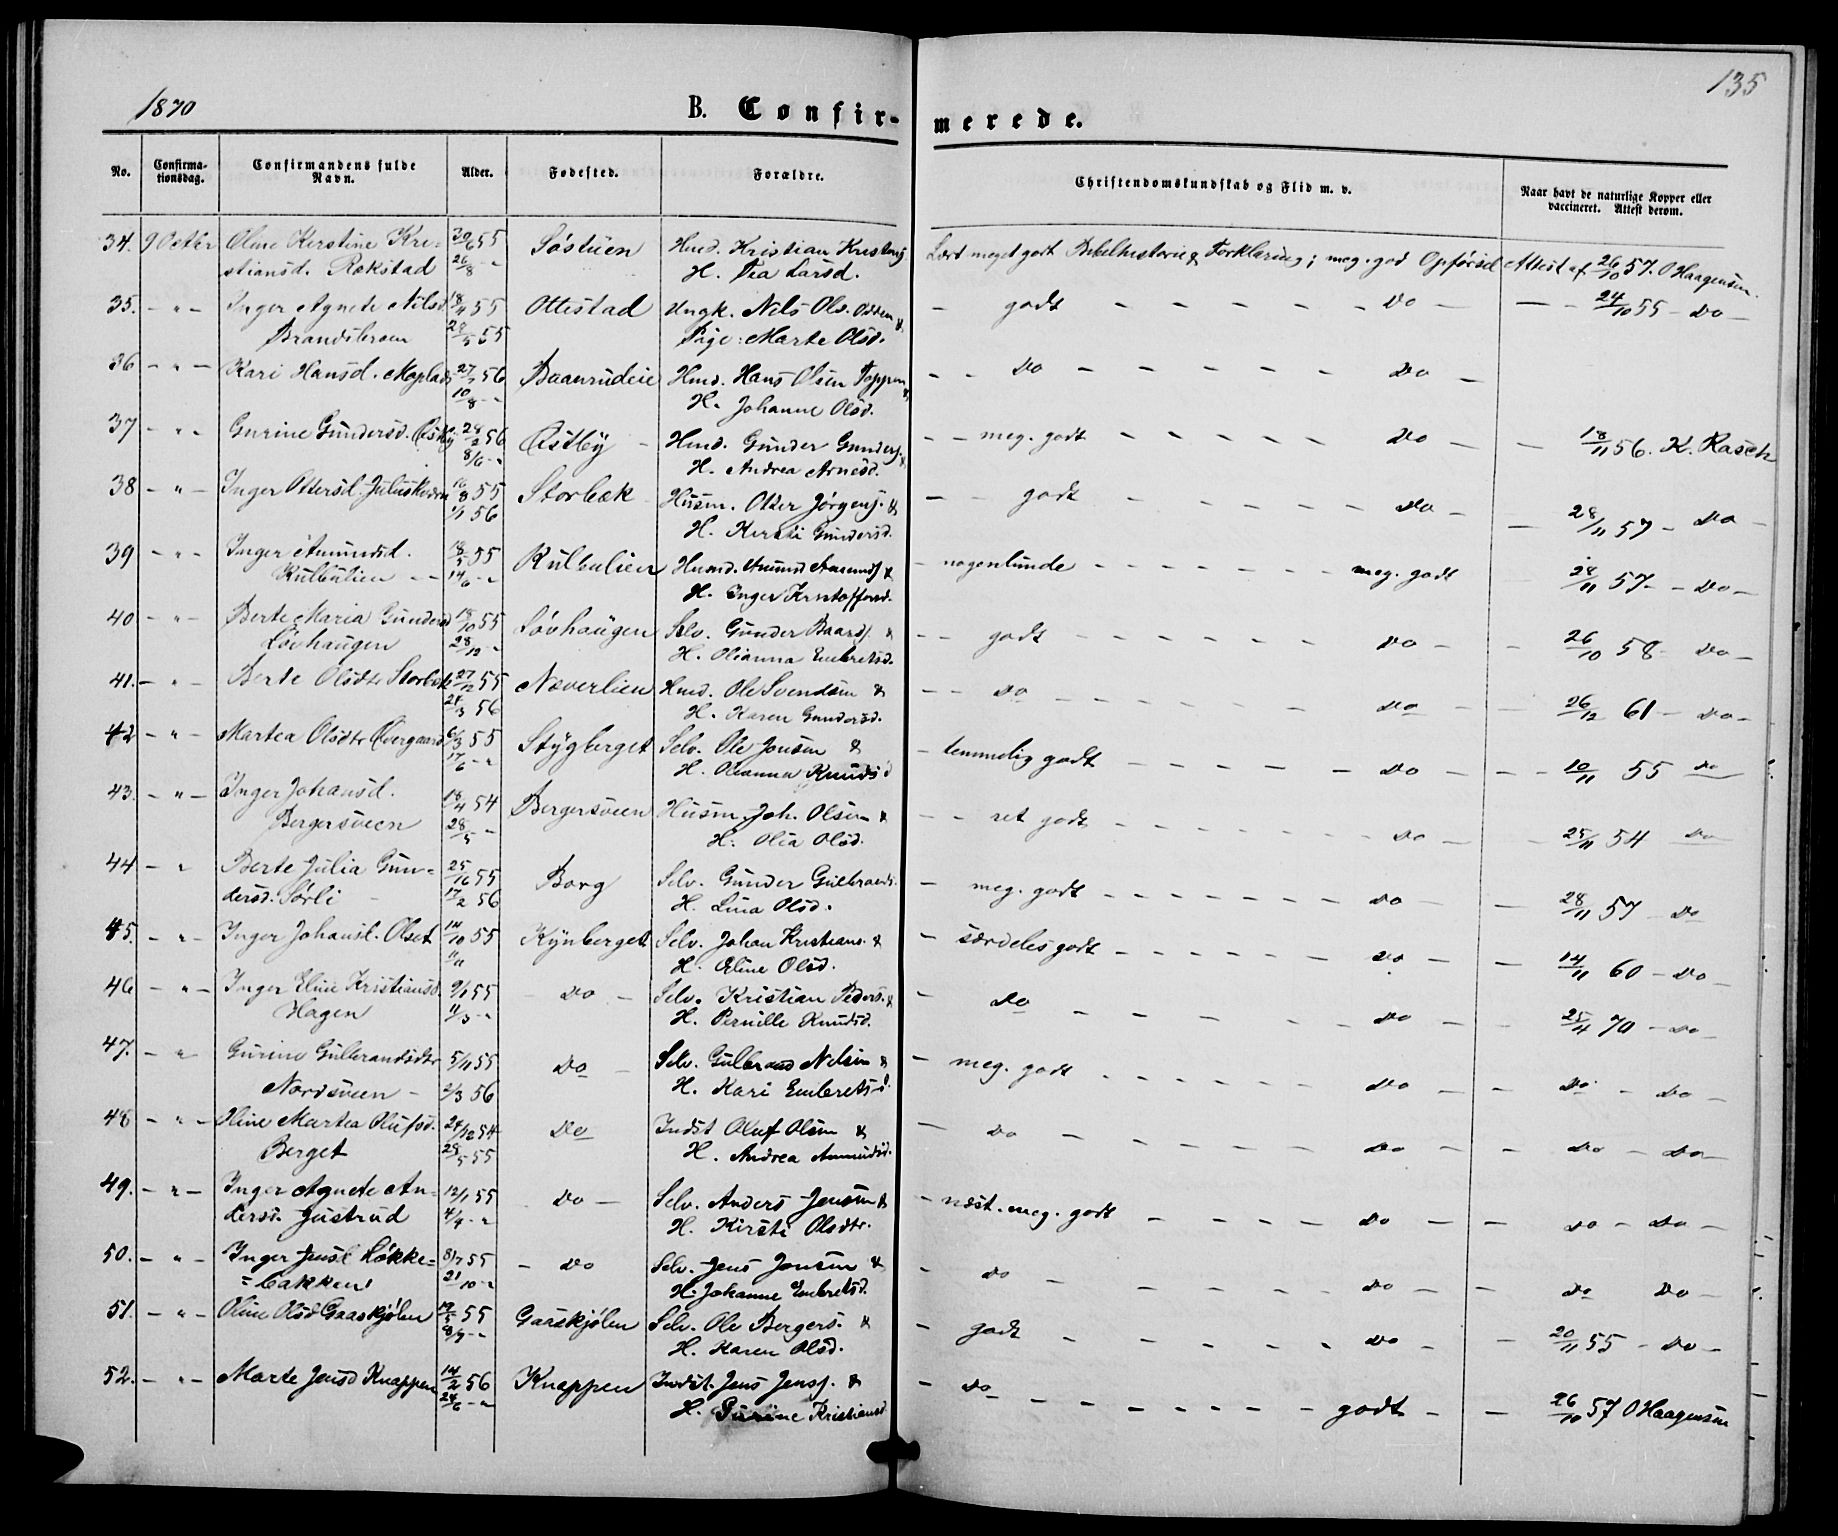 135
1870
B. Confir-
merede.
No.
Confirma-
tionsdag.
Confirmandens fulde
Navn.
Alder.
Fødested.
Forældre.
Christendomskundskab og Flid m. v.
Naar havt de naturlige Kopper eller
vaccineret. Attest derom.
34. 9 Octbr Oline Kerstine Kri= 55 Søstuen Hmd. Kristian Lært meget godt Bibelhistorie & Forklaring; meg. god Opførsel Attest af 26/10 57. O Haagensen.
stiansd. Rokstad 26/8 - " H. Pea Larsd.
35. - " - Inger Agnete Nilsd. 18/4 55 Ottestad Ungk. Nels Ols. & - godt - - - - - - Do - - - 24/10 55 - Do -
28/5 55 Pige: Marte Olsd.
36 - " - Kari Hansd. 27/7 56 Baanrudeie Hmd. Hans Olsen & - - Do - - - - - - Do -
10/8 - " H. Johanne Olsd.
37 - " - Gurine Gundersd. Østby 28/2 56 Østby - Hmd. Gunder Gunders. & - - meg. godt - - - - - - Do - - 18/11 56. K. Rasch
8/6 - " H. Andrea Arnesd.
38 - " - Inger Ottersd. 55 Storbæk - Husm. Otter Jørgens. & - - godt - - - - - - Do - - 28/11 57 - Do -
1/1 56 H. Kersti Gundersd.
39 - " - Inger Amundsd. 18/5 55 Kulbulien Husmd. Amund Amunds. & - nogenlunde - - - - - - - meg. godt - 28/11 57 - - Do -
Kulbulien - - 14/6 - " H. Inger Kristoffersd.
40 - " - Berte Maria Gundersd 18/10 55 Løvhaugen Selv. Gunder Baards. & - - godt - - - - - - Do - - 26/10 58 - Do -
Løvhaugen 28/12 - H. Olianna Embretsd.
41. - " - Berte Olsdtr Storbæk 27/12 55 Næverlien Hmd. Ole Svendsen & - - Do - - - - - - - Do - - 26/12 61 - Do -
24/3 56 H. Karen Gundersd.
42 - " - Martea Olsdtr Øvergaard 6/3 55 Stygberget Selv. Ole Jonsen & - temmelig godt - - - - - Do - - - 10/11 55 Do
17/6 - " H. Oleanna Knudsd
43. - " - Inger Johansd. 18/4 54 Bergersveen Husm. Joh. Olsen & - - ret godt - - - - - - - - Do - - 25/11 54 Do
Bergersveen 28/5 - H. Olia Olsd.
44 - " Berte Julia Gun= 25/10 55 Borg Selv. Gunder Gulbrands. - meg. godt - - - - - - Do - - 28/11 57 - Do
dersd. Sørli - 17/2 56 H. Lina Olsd.
45. - " - Inger Johansd. Olset 14/10 55 Kynberget Selv. Johan Kristians. & - særdeles godt - - - - - - Do - - 14/11 60 - Do -
11/11 H. Eline Olsd.
46 - " - Inger Eline Kristiansd. 9/1 55 - Do - Selv. Kristian Peders. & - Do - - - - - - Do - - 25/11 70 - Do -
Hagen 11/3 - " H. Pernille Knudsd.
47. - " Gurine Gulbrandsdtr 5/11 55 Do - Selv. Gulbrand Nelsen & - meg. godt - - - - - - Do - - Do - Do -
Nordsveen - 2/3 56 H. Kari Embretsd.
48 - " - Oline Martea Olufsd. 24/12 54 Do Indst Oluf Olsen & - Do - - - - - - Do - - Do - Do -
Berget 28/5 55 H. Andrea Amundsd.
49. - " - Inger Agnete An= 12/1 55 Do - Selv. Anders Jensen & - næst. meg. godt - - - - - Do - - Do - Do -
dersd. Justrud 4/4 - " H. Kirsti Olsdtr.
50. - " - Inger Jensd Løkke= 8/7 55 - Do Selv. Jens Jonsen & - Do - - - - - - Do - - Do Do -
=bakken 21/10 - " H. Johanne Embretsd.
51. - " - Oline Olsd Gaaskjølen 55 Gaaskjølen Selv. Ole Bergers. & - godt - - - - - - Do - - 20/11 55 - Do -
8/7 - " H. Karen Olsd.
52. - " - Marte Jensd Knappen 14/2 56 Knappen Indst. Jens Jens. & - Do - - - - - - - - godt - - 26/10 57 O Haagensen
24/6 - " H. Gurine Kristiansd